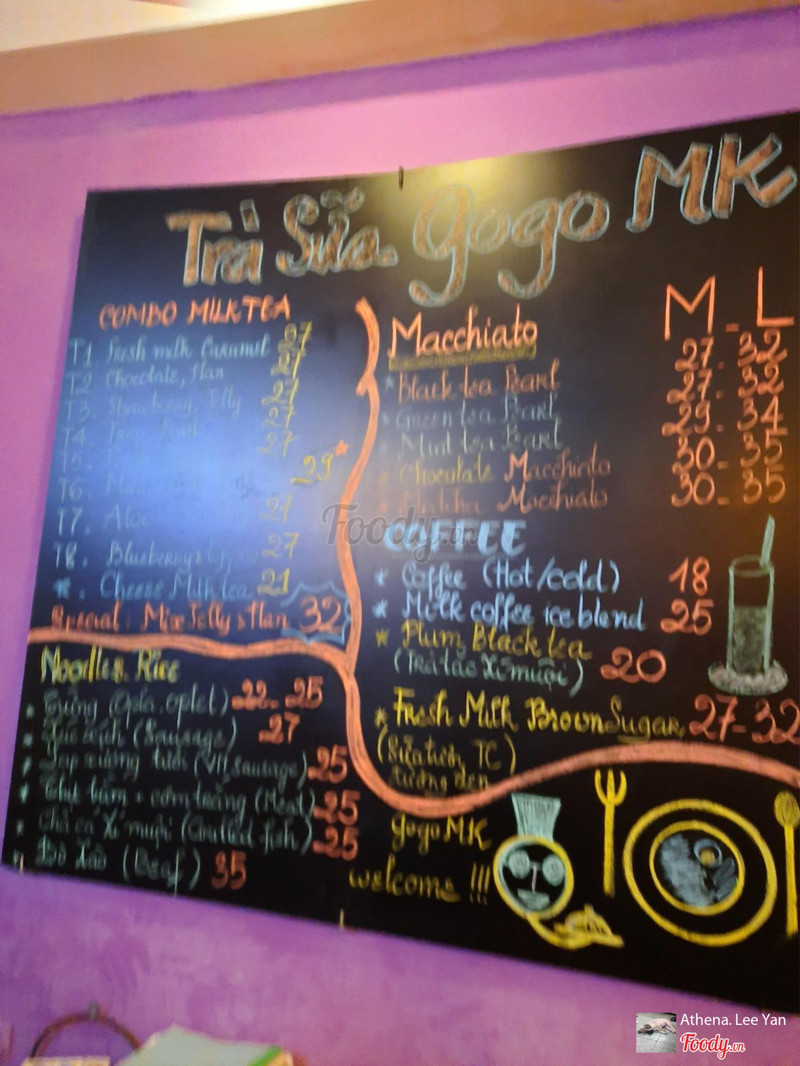 Trà Sữa gogo MK
COMBO MILKTEA
T1. Fresh milk Caramel 27
T2. Chocolate, flan 27
T3. Strawberry, Jelly 27
T4. 27
T5. 27
T6. 29
T7. Aloe 27
T8. Blueberry 27
*. Cheese Milk tea 21
Special: Mix Jelly & flan 32
Noodles. Rice
Trứng (Opla. oplet) 22-25
Xúc xích (Sausage) 27
Lạp xưởng tươi (VN sausage) 25
Thịt bằm + cơm trắng (Meat) 25
Chả cá Xí muội 25
Bò Xào (Beaf) 35
Macchiato M - L
* Black tea Pearl 27-32
* Green tea Pearl 27-32
* Mint tea Pearl 29-34
* Chocolate Macchiato 30-35
* Matcha Macchiato 30-35
COFFEE
* Coffee (Hot/cold) 18
* Milk coffee ice blend 25
* Plum Black tea
(Trà tắc Xí muội) 20
* Fresh Milk Brown Sugar 27-32
(Sữa tươi TC
đường đen)
gogo MK
welcome !!!
Foody.vn
Athena. Lee Yan
Foody.vn